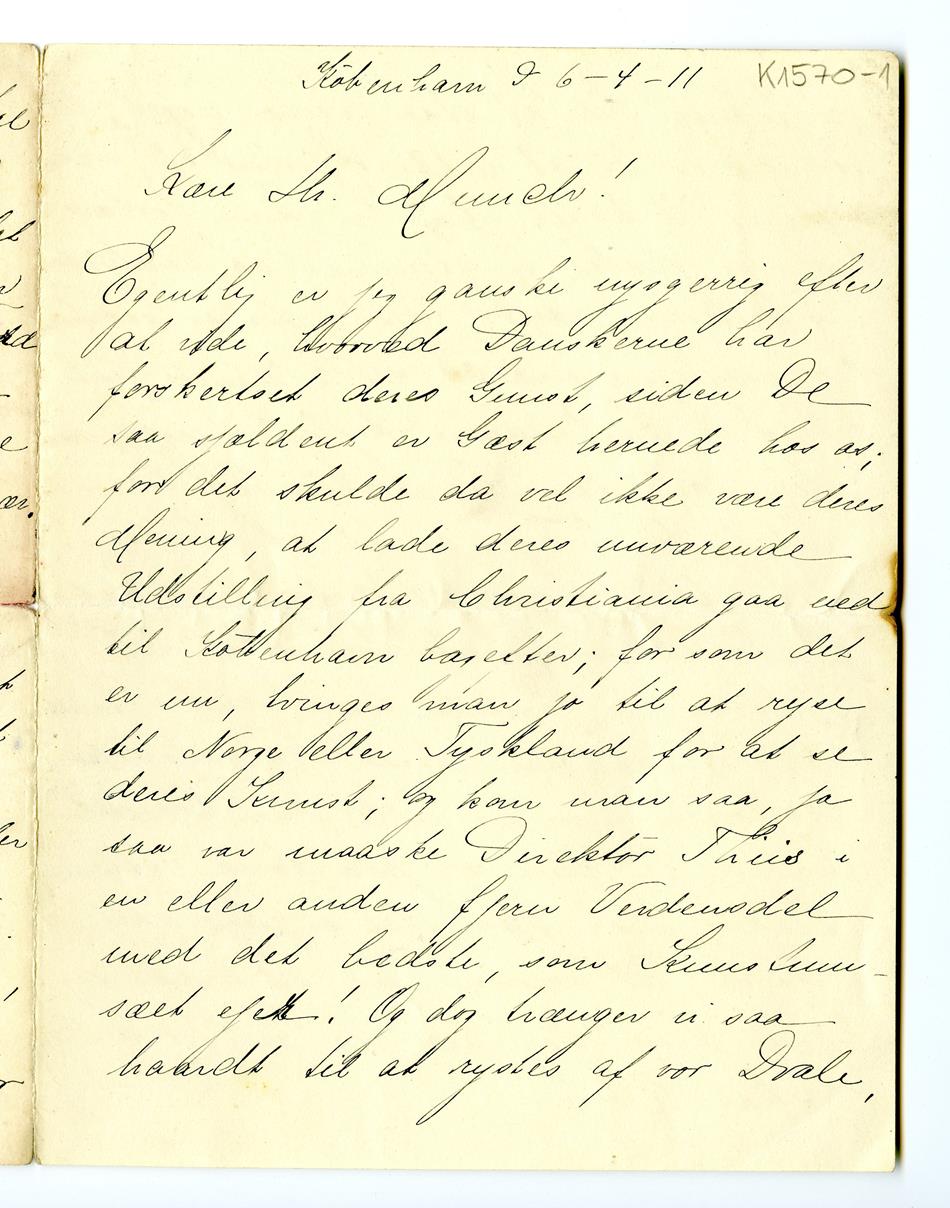 København D 6-4-11 K1570-1
Kære Hr. Munch!
Egentlig er jeg ganske nysgerrig efter
at vide, hvorved Danskerne har
forskertset deres Gunst, siden De
saa sjældent er Gæst hernede hos os;
for det skulde da vel ikke være deres
Mening, at lade deres nuværende
Udstilling fra Christiania gaa ned
til København bagefter; for som det
er nu, tvinges man jo til at rejse
til Norge eller Tyskland for at se
deres Kunst; og kom man saa, ja
saa var maaske Direktör Thiis i
en eller anden fjern Verdensdel
med det bedste, som Kunstmu-
sæet ejer! Og dog trænger vi saa
haardt til at rystes af vor Dvale,